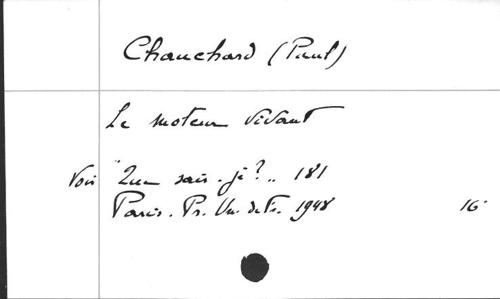 Chauchard (Paul)
Le moteur vivant
Voir "Que sais-je?" 181
Paris. Pr. Un. de Fr. 1948 16°